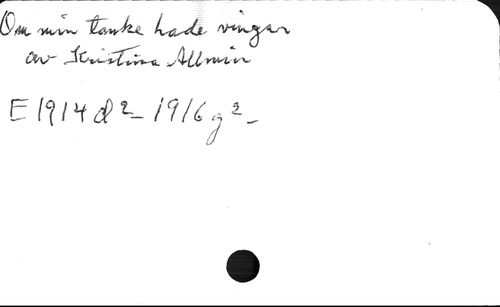 Om min tanke hade vingar
av Kristina Allmin
E 1914 d² - 1916 g² -